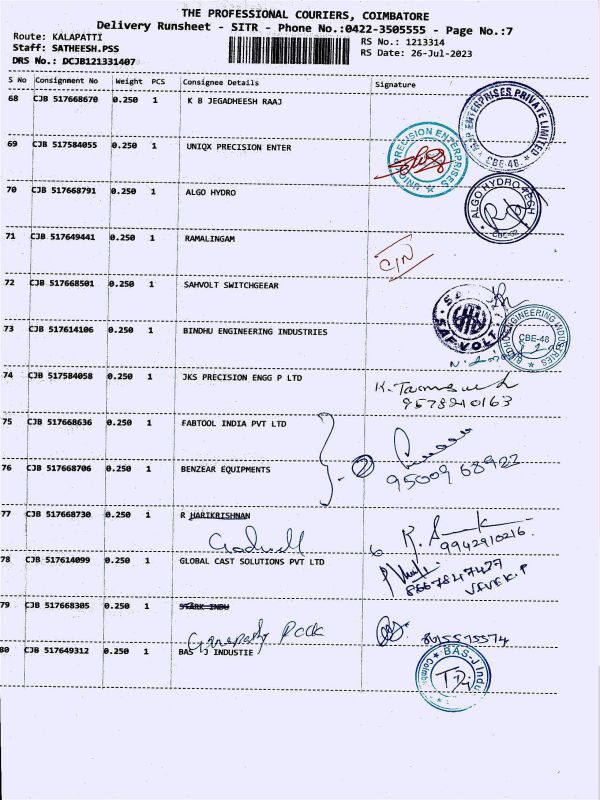 THE PROFESSIONAL COURIERS, COIMBATORE
Delivery Runsheet - SITR - Phone No.:0422-3505555 - Page No.:7
Route: KALAPATTI
RS No.: 1213314
Staff: SATHEESH.PSS
RS Date: 26-Jul-2023
DRS No.: DCJB121331407
S No Consignment No Weight PCS Consignee Details Signature
68 CJB 517668670 0.250 1 K B JEGADHEESH RAAJ
ENTERPRISES PRIVATE LIMITED
CBE-48.
69 CJB 517584055 0.250 1 UNIQX PRECISION ENTER
PRECISION ENTERPRISES
70 CJB 517668791 0.250 1 ALGO HYDRO
ALGO HYDRO TECH
71 CJB 517649441 0.250 1 RAMALINGAM
C/N
72 CJB 517668501 0.250 1 SAHVOLT SWITCHGEEAR
73 CJB 517614106 0.250 1 BINDHU ENGINEERING INDUSTRIES
BINDHU ENGINEERING INDUSTRIES
CBE-48
74 CJB 517584058 0.250 1 JKS PRECISION ENGG P LTD
9578240163
75 CJB 517668636 0.250 1 FABTOOL INDIA PVT LTD
76 CJB 517668706 0.250 1 BENZEAR EQUIPMENTS
2
9500968922
77 CJB 517668730 0.250 1 R HARIKRISHNAN
9942910216
78 CJB 517614099 0.250 1 GLOBAL CAST SOLUTIONS PVT LTD
8667847427
VIVEK.P
79 CJB 517668305 0.250 1 STARK INDU
80 CJB 517649312 0.250 1 BAS J INDUSTIE
BAS-J Indu